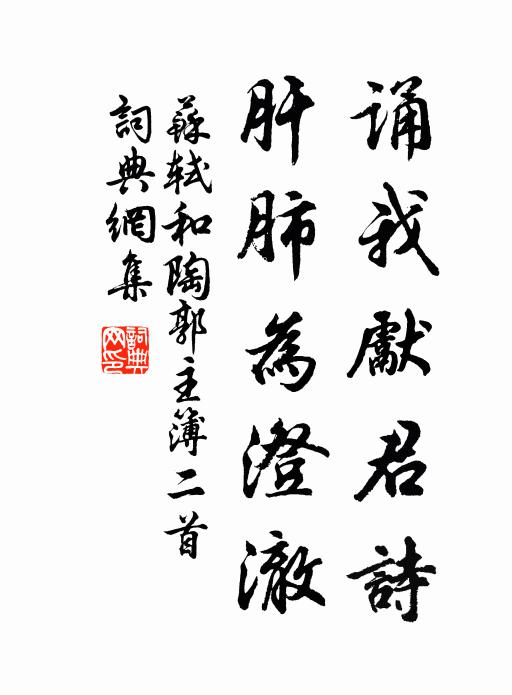 诵我獻君詩
肝肺為澄澈
蘇軾和陶郭主簿二首
詞典網集
詞典網印